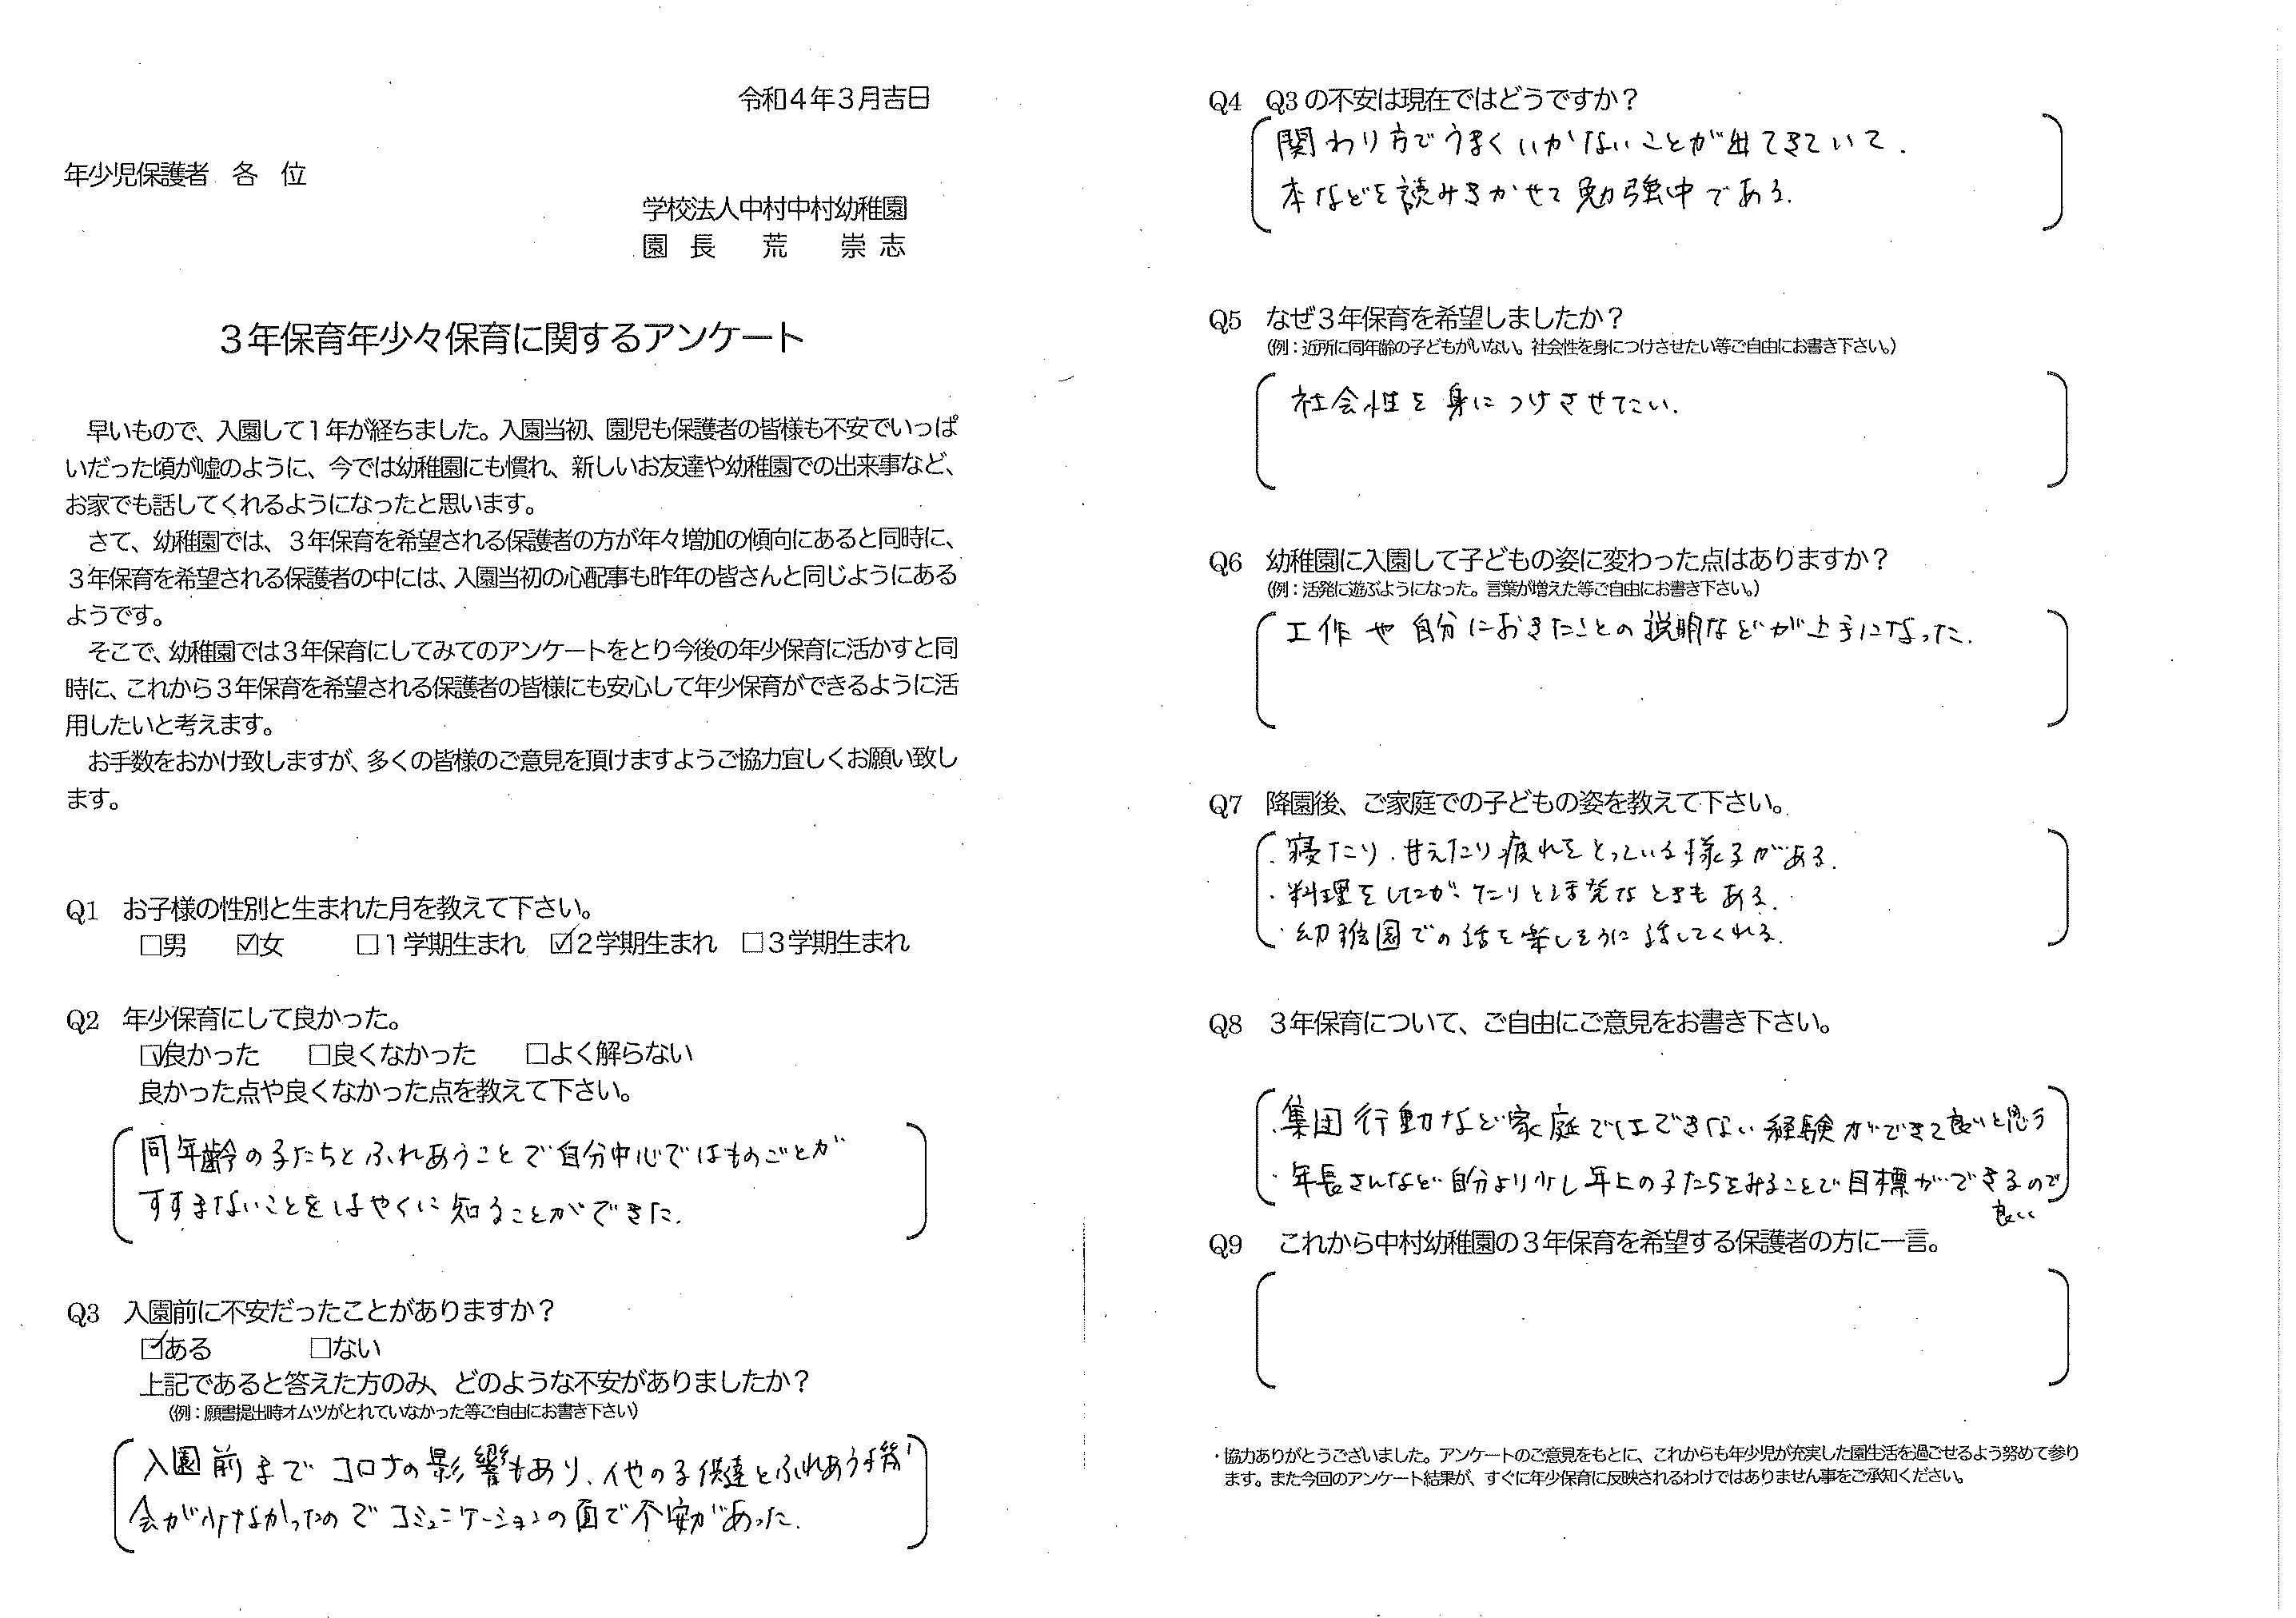 令和４年３月吉日
年少児保護者 各 位
学校法人中村中村幼稚園
園 長 荒 崇 志
３年保育年少々保育に関するアンケート
早いもので、入園して１年が経ちました。入園当初、園児も保護者の皆様も不安でいっぱ
いだった頃が嘘のように、今では幼稚園にも慣れ、新しいお友達や幼稚園での出来事など、
お家でも話してくれるようになったと思います。
さて、幼稚園では、３年保育を希望される保護者の方が年々増加の傾向にあると同時に、
３年保育を希望される保護者の中には、入園当初の心配事も昨年の皆さんと同じようにある
ようです。
そこで、幼稚園では３年保育にしてみてのアンケートをとり今後の年少保育に活かすと同
時に、これから３年保育を希望される保護者の皆様にも安心して年少保育ができるように活
用したいと考えます。
お手数をおかけ致しますが、多くの皆様のご意見を頂けますようご協力宜しくお願い致し
ます。
Q1 お子様の性別と生まれた月を教えて下さい。
□男 ☑女 □１学期生まれ ☑２学期生まれ □３学期生まれ
Q2 年少保育にして良かった。
☑良かった □良くなかった □よく解らない
良かった点や良くなかった点を教えて下さい。
同年齢の子たちとふれあうことで自分中心ではものごとが
すすまないことをはやくに知ることができた。
Q3 入園前に不安だったことがありますか？
☑ある □ない
上記であると答えた方のみ、どのような不安がありましたか？
（例：願書提出時オムツがとれていなかった等ご自由にお書き下さい）
入園前までコロナの影響もあり、他の子供達とふれあう機
会が少なかったのでコミュニケーションの面で不安があった。
Q4 Q3の不安は現在ではどうですか？
関わり方でうまくいかないことが出てきていて、
本などを読みきかせて勉強中である。
Q5 なぜ３年保育を希望しましたか？
（例：近所に同年齢の子どもがいない。社会性を身につけさせたい等ご自由にお書き下さい。）
社会性を身につけさせてたい。
Q6 幼稚園に入園して子どもの姿に変わった点はありますか？
（例：活発に遊ぶようになった。言葉が増えた等ご自由にお書き下さい。）
工作や自分におきたことの説明などが上手になった。
Q7 降園後、ご家庭での子どもの姿を教えて下さい。
・寝たり、甘えたり疲れをとっている様子がある。
・料理をしたがったりと活発なときもある。
・幼稚園での話を楽しそうに話してくれる。
Q8 ３年保育について、ご自由にご意見をお書き下さい。
・集団行動など家庭ではできない経験ができて良いと思う
・年長さんなど自分より少し年上の子たちをみることで目標ができるので
良い
Q9 これから中村幼稚園の３年保育を希望する保護者の方に一言。
・協力ありがとうございました。アンケートのご意見をもとに、これからも年少児が充実した園生活を過ごせるよう努めて参り
ます。また今回のアンケート結果が、すぐに年少保育に反映されるわけではありません事をご承知ください。